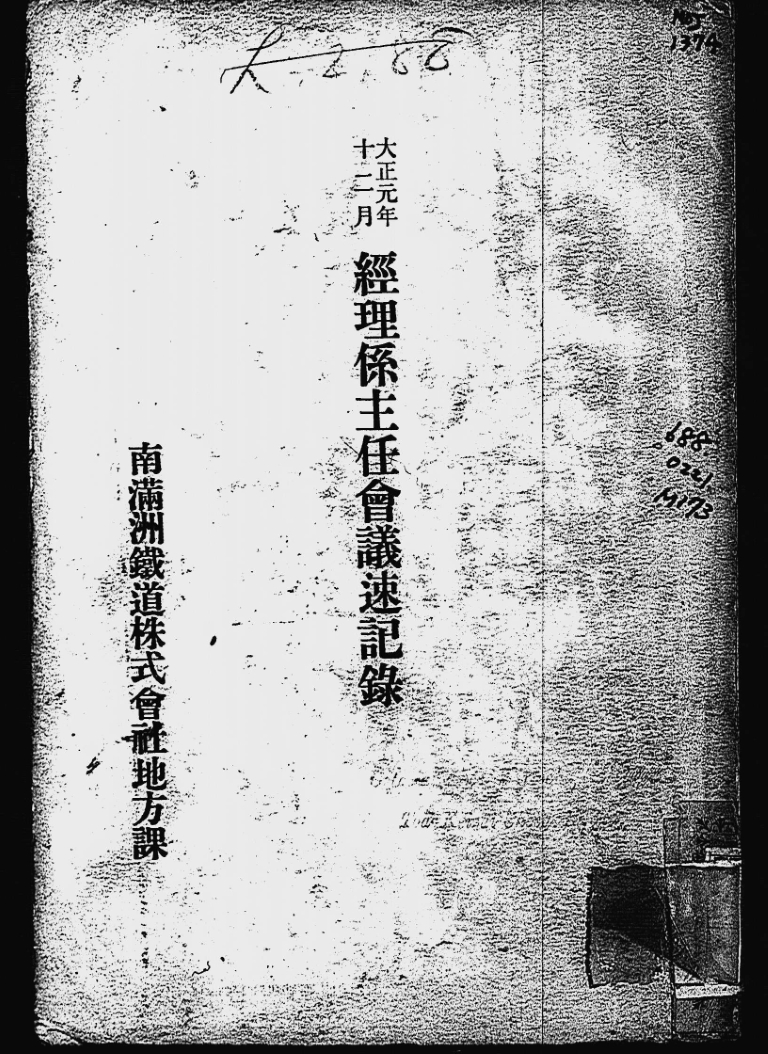 MOJ
1374
大正元年
十二月
經理係主任會議速記錄
688
0221
M173
南滿洲鐵道株式會社地方課